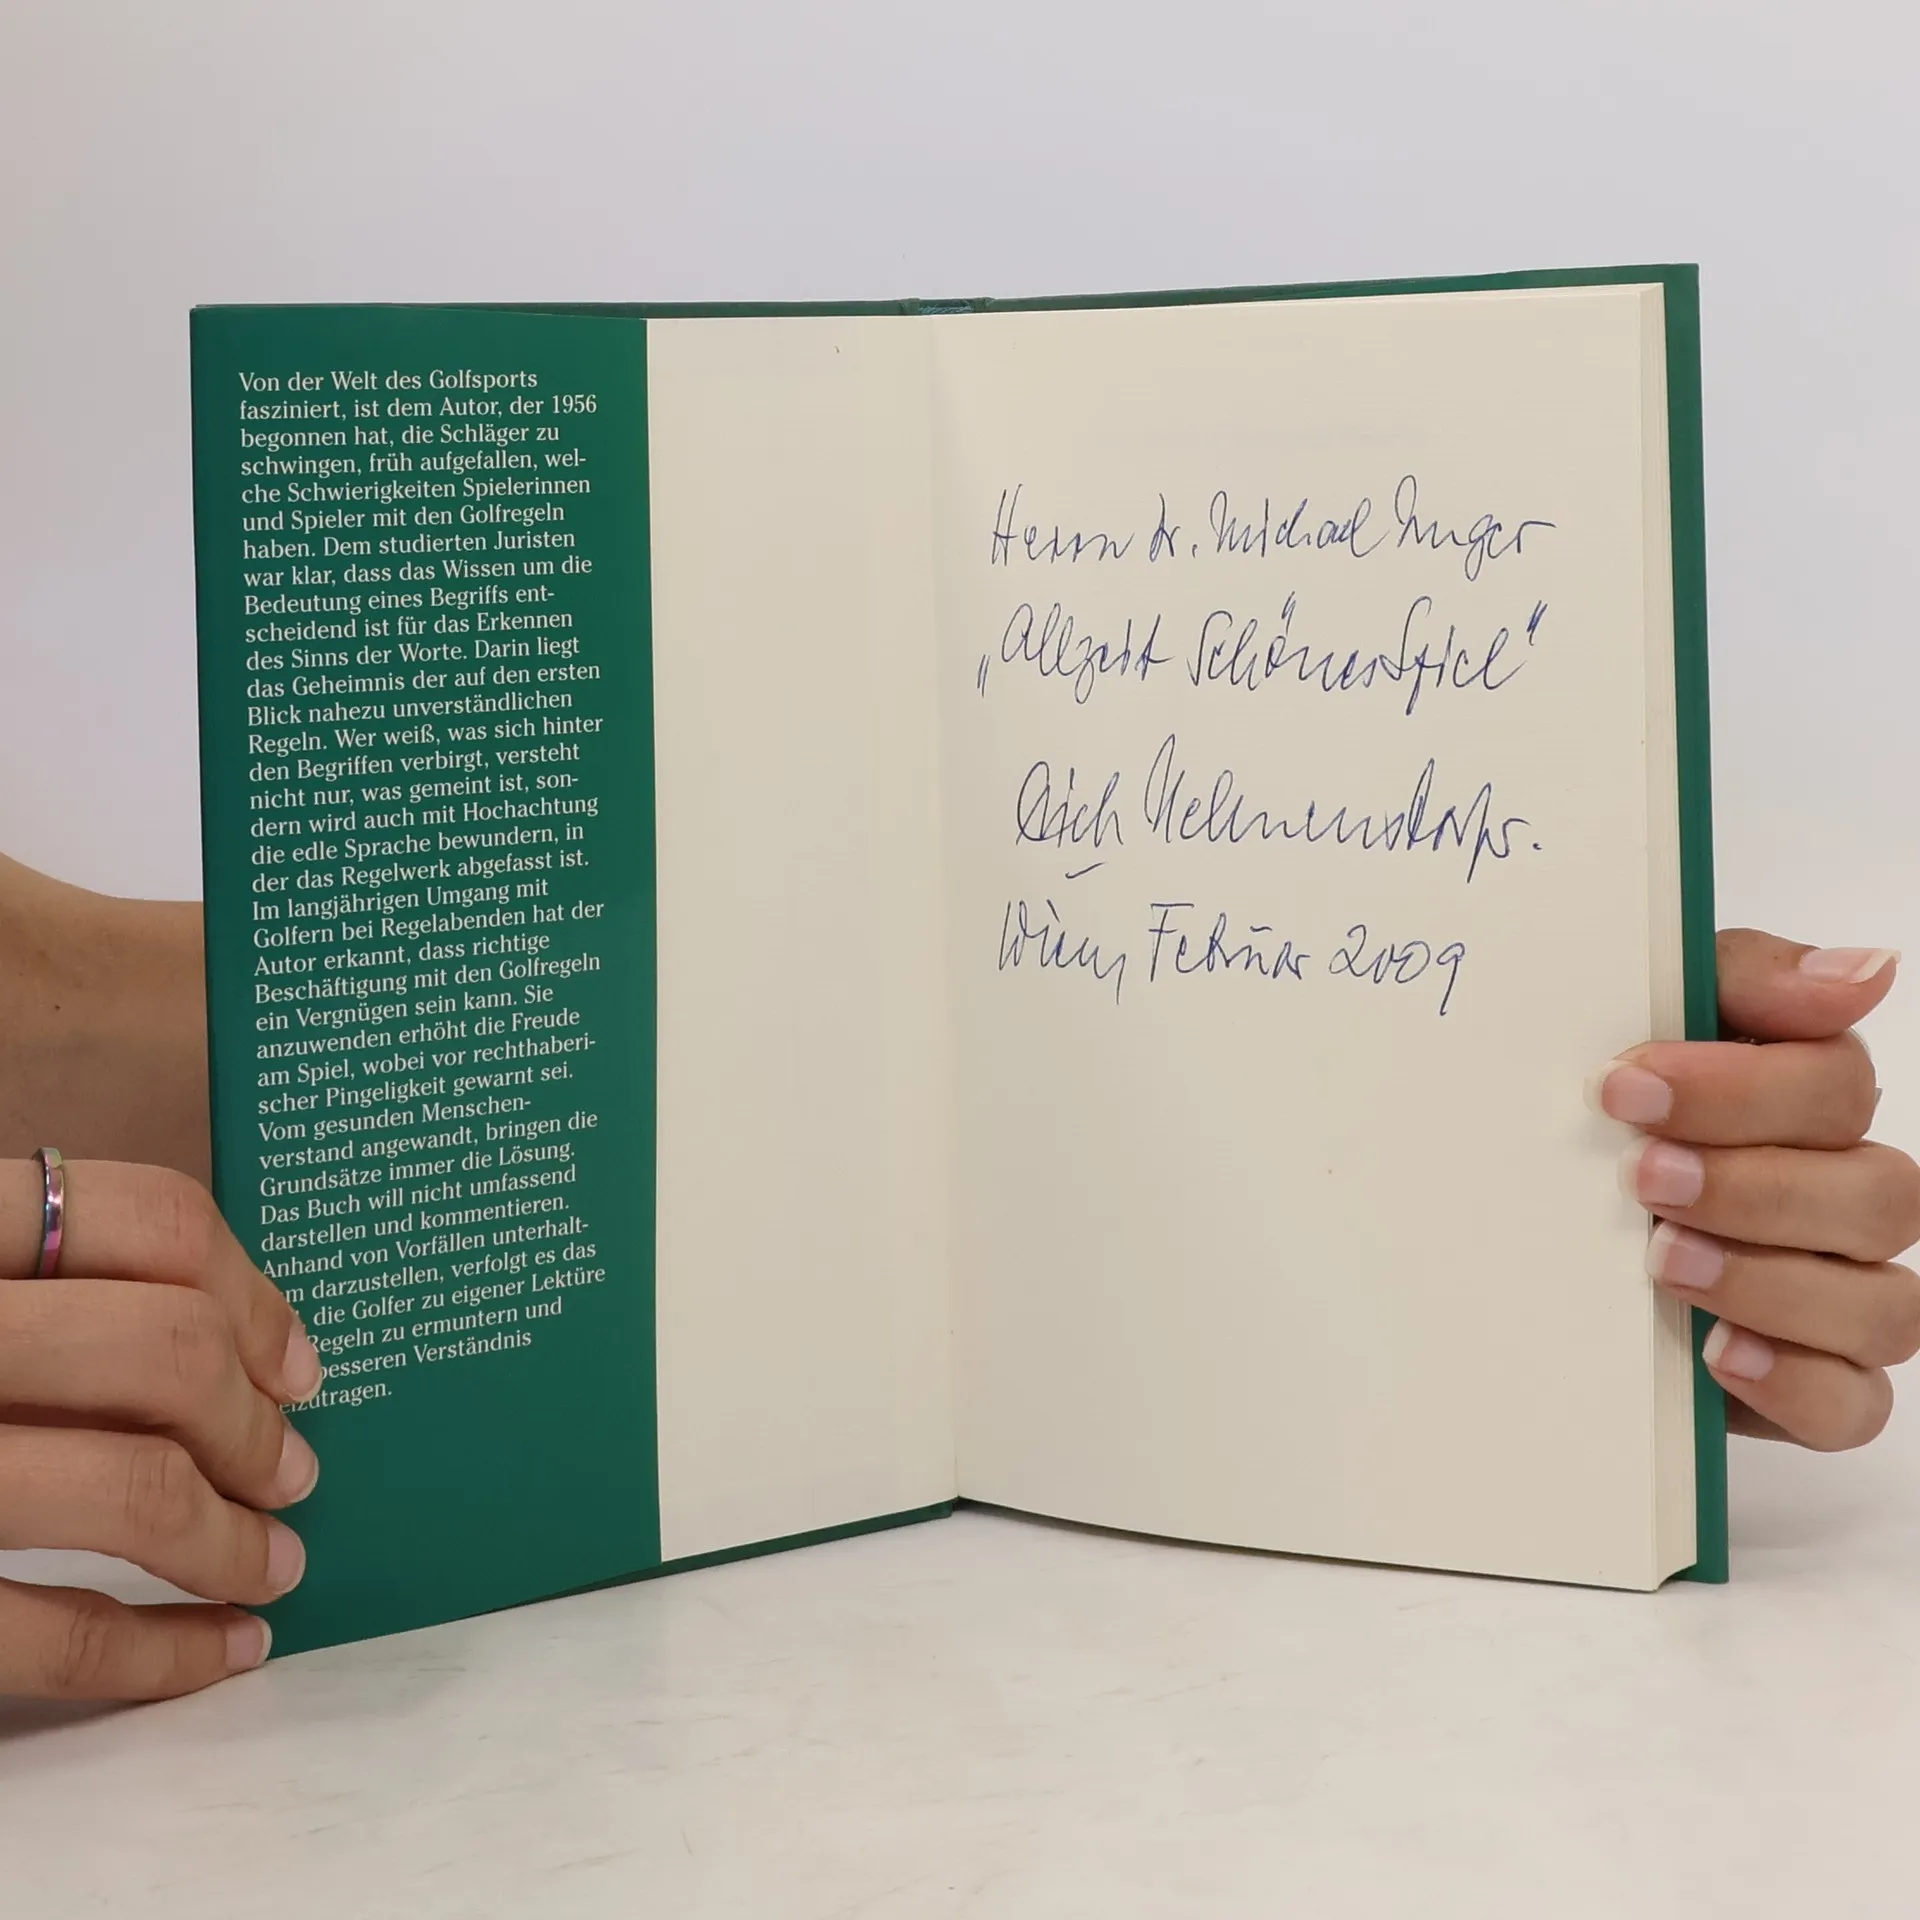 Von der Welt des Golfsports
fasziniert, ist dem Autor, der 1956
begonnen hat, die Schläger zu
schwingen, früh aufgefallen, wel-
che Schwierigkeiten Spielerinnen
und Spieler mit den Golfregeln
haben. Dem studierten Juristen
war klar, dass das Wissen um die
Bedeutung eines Begriffs ent-
scheidend ist für das Erkennen
des Sinns der Worte. Darin liegt
das Geheimnis der auf den ersten
Blick nahezu unverständlichen
Regeln. Wer weiß, was sich hinter
den Begriffen verbirgt, versteht
nicht nur, was gemeint ist, son-
dern wird auch mit Hochachtung
die edle Sprache bewundern, in
der das Regelwerk abgefasst ist.
Im langjährigen Umgang mit
Golfern bei Regelabenden hat der
Autor erkannt, dass richtige
Beschäftigung mit den Golfregeln
ein Vergnügen sein kann. Sie
anzuwenden erhöht die Freude
am Spiel, wobei vor rechthaberi-
scher Pingeligkeit gewarnt sei.
Vom gesunden Menschen-
verstand angewandt, bringen die
Grundsätze immer die Lösung.
Das Buch will nicht umfassend
darstellen und kommentieren.
Anhand von Vorfällen unterhalt-
m darzustellen, verfolgt es das
die Golfer zu eigener Lektüre
Regeln zu ermuntern und
besseren Verständnis
eizutragen.
Herrn Dr. Michael
„Allzeit Schönes Spiel"
Wien, Februar 2009